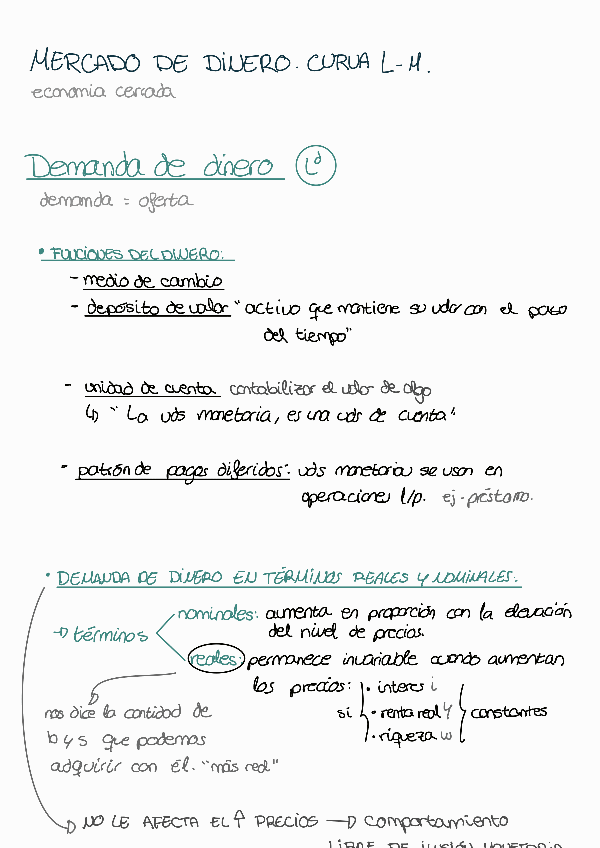 MERCADO DE DINERO. CURVA L-M.
economia cerrada
Demanda de dinero Lᵈ
demanda = oferta
• FUNCIONES DEL DINERO:
- medio de cambio
- depósito de valor "activo que mantiene su valor con el paso
del tiempo"
- unidad de cuenta contabilizar el valor de algo
↳ "La uds monetaria, es una uds de cuenta"
- patrón de pagos diferidos: uds monetarias se usan en
operaciones l/p. ej. préstamo.
• DEMANDA DE DINERO EN TÉRMINOS REALES Y NOMINALES.
nominales: aumenta en proporción con la elevación
→ términos del nivel de precios.
reales: permanece invariable cuando aumentan
los precios: • interes i
nos dice la cantidad de si • renta real Y constantes
b y s que podemos • riqueza w
adquirir con él. "más real"
→ NO LE AFECTA EL ↑ PRECIOS → comportamiento
LIBRE DE ILUSIÓN MONETARIA